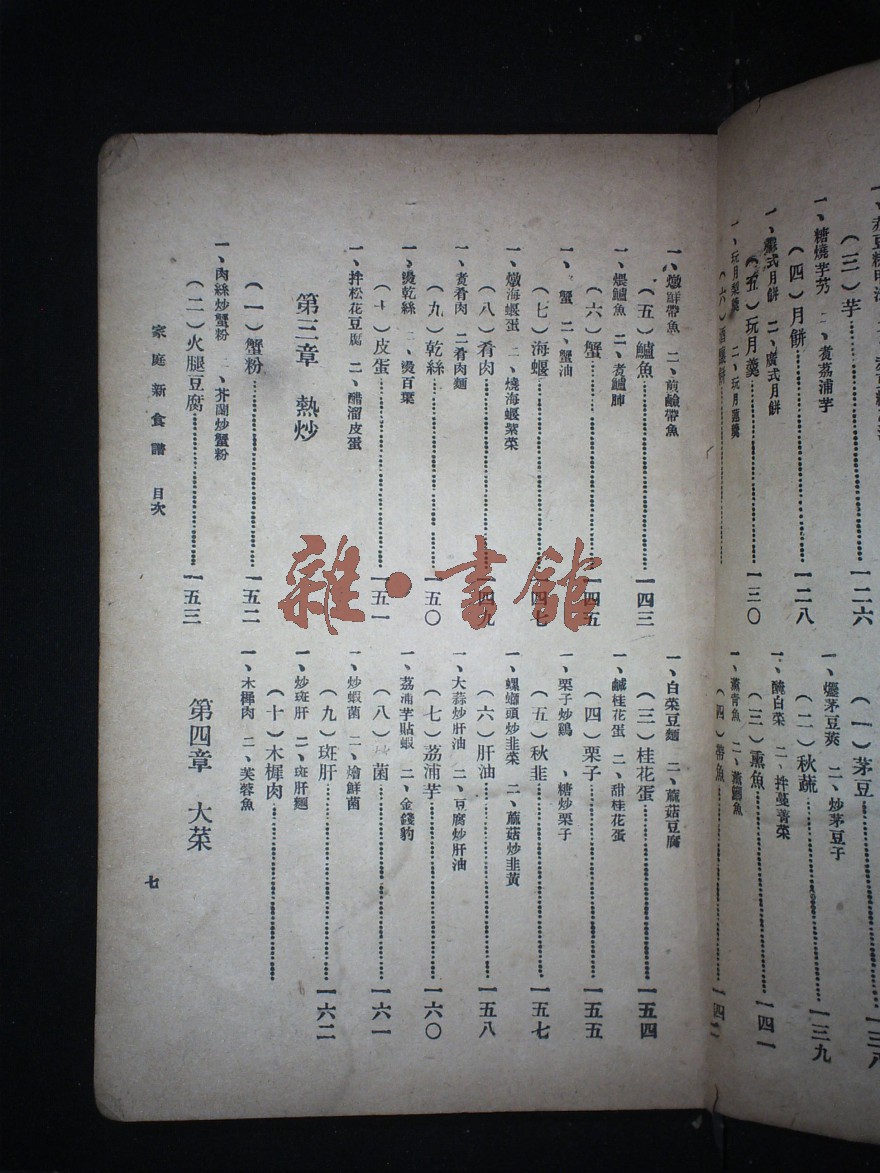 (三)芋……一二六
一、糖燒芋艿 二、煮荔浦芋
(四)月餅……一二八
二、廣式月餅
(五)玩月羹……一三〇
(一)茅豆……一三八
二、炒茅豆子
(二)秋蔬……一三九
一、醃白菜 二、拌蔓菁菜
(三)熏魚……一四一
一、熏青魚
(四)帶魚……一四二
一、燉鮮帶魚 二、煎鹹帶魚
(五)鱸魚……一四三
一、煨鱸魚 二、煮鱸肺
(六)蟹……一四五
一、蟹 二、蟹油
(七)海蝘……一四七
一、燉海蝘蛋 二、燒海蝘紫菜
(八)肴肉……一四九
一、煮肴肉 二、肴肉麵
(九)乾絲……一五〇
一、燙乾絲 二、燙百葉
(十)皮蛋……一五一
一、拌松花豆腐 二、醋溜皮蛋
第三章 熱炒
(一)蟹粉……一五二
一、肉絲炒蟹粉 二、芥蘭炒蟹粉
(二)火腿豆腐……一五三
一、白菜豆麵 二、蘑菇豆腐
(三)桂花蛋……一五四
一、鹹桂花蛋 二、甜桂花蛋
(四)栗子……一五五
一、栗子炒鷄 、糖炒栗子
(五)秋韭……一五七
一、螺螄頭炒韭菜 二、蘑菇炒韭黃
(六)肝油……一五八
一、大蒜炒肝油 二、豆腐炒肝油
(七)荔浦芋……一六〇
一、荔浦芋貼蝦 二、金錢豹
(八)菌……一六一
一、炒蝦菌 二、燴鮮菌
(九)斑肝……一六二
一、炒斑肝 二、斑肝麵
(十)木樨肉……
一、木樨肉 二、芙蓉魚
第四章 大菜
家庭新食譜 目次
七
雜·書館